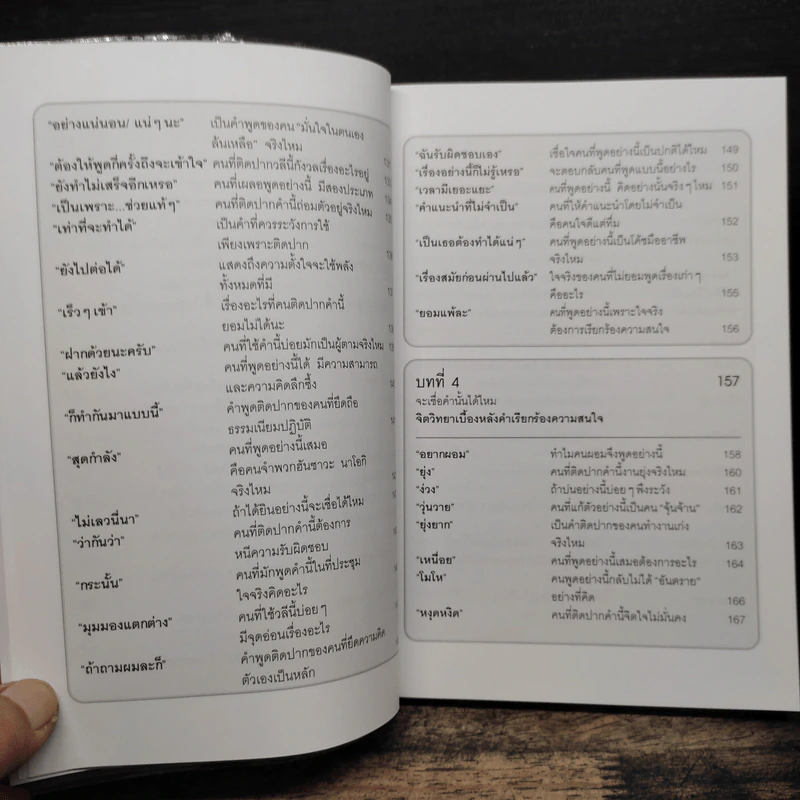 "อย่างแน่นอน/ แน่ๆ นะ" เป็นคำพูดของคน "มั่นใจในตนเอง
ล้นเหลือ" จริงไหม
"ต้องให้พูดกี่ครั้งถึงจะเข้าใจ" คนที่ติดปากวลีนี้กังวลเรื่องอะไรอยู่
"ยังทำไม่เสร็จอีกเหรอ" คนที่เผลอพูดอย่างนี้ มีสองประเภท
"เป็นเพราะ...ช่วยแท้ๆ" คนที่ติดปากคำนี้ถ่อมตัวอยู่จริงไหม
"เท่าที่จะทำได้" เป็นคำที่ควรระวังการใช้
เพียงเพราะติดปาก
"ยังไปต่อได้" แสดงถึงความตั้งใจจะใช้พลัง
ทั้งหมดที่มี
"เร็วๆ เข้า" เรื่องอะไรที่คนติดปากคำนี้
ยอมไม่ได้นะ
"ฝากด้วยนะครับ" คนที่ใช้คำนี้บ่อยมักเป็นผู้ตามจริงไหม
"แล้วยังไง" คนที่พูดอย่างนี้ได้ มีความสามารถ
และความคิดลึกซึ้ง
"ก็ทำกันมาแบบนี้" คำพูดติดปากของคนที่ยึดถือ
ธรรมเนียมปฏิบัติ
"สุดกำลัง" คนที่พูดอย่างนี้เสมอ
คือคนจำพวกฮันซาวะ นาโอกิ
จริงไหม
"ไม่เลวนี่นา" ถ้าได้ยินอย่างนี้จะเชื่อได้ไหม
"ว่ากันว่า" คนที่ติดปากคำนี้ต้องการ
หนีความรับผิดชอบ
"กระนั้น" คนที่มักพูดคำนี้ในที่ประชุม
ใจจริงคิดอะไร
"มุมมองแตกต่าง" คนที่ใช้วลีนี้บ่อยๆ
มีจุดอ่อนเรื่องอะไร
"ถ้าถามผมละก็" คำพูดติดปากของคนที่ยึดความคิด
ตัวเองเป็นหลัก
"ฉันรับผิดชอบเอง" เชื่อใจคนที่พูดอย่างนี้เป็นปกติได้ไหม 149
"เรื่องอย่างนี้ก็ไม่รู้เหรอ" จะตอบกลับคนที่พูดแบบนี้อย่างไร 150
"เวลามีเยอะแยะ" คนที่พูดอย่างนี้ คิดอย่างนั้นจริงๆ ไหม 151
"คำแนะนำที่ไม่จำเป็น" คนที่ให้คำแนะนำโดยไม่จำเป็น
คือคนใจดีแต่ที่ม 152
"เป็นเธอต้องทำได้แน่ๆ" คนที่พูดอย่างนี้เป็นโค้ชมืออาชีพ
จริงไหม 153
"เรื่องสมัยก่อนผ่านไปแล้ว" ใจจริงของคนที่ไม่ยอมพูดเรื่องเก่าๆ
คืออะไร 155
"ยอมแพ้ละ" คนที่พูดอย่างนี้เพราะใจจริง
ต้องการเรียกร้องความสนใจ 156
บทที่ 4 157
จะเชื่อคำนั้นได้ไหม
จิตวิทยาเบื้องหลังคำเรียกร้องความสนใจ
"อยากผอม" ทำไมคนผอมจึงพูดอย่างนี้ 158
"ยุ่ง" คนที่ติดปากคำนี้งานยุ่งจริงไหม 160
"ง่วง" ถ้าบ่นอย่างนี้บ่อยๆ พึงระวัง 161
"วุ่นวาย" คนที่แก้ตัวอย่างนี้เป็นคน "จุ้นจ้าน" 162
"ยุ่งยาก" เป็นคำติดปากของคนทำงานเก่ง
จริงไหม 163
"เหนื่อย" คนที่พูดอย่างนี้เสมอต้องการอะไร 164
"โมโห" คนพูดอย่างนี้กลับไม่ได้ "อันตราย"
อย่างที่คิด 166
"หงุดหงิด" คนที่ติดปากคำนี้จิตใจไม่มั่นคง 167